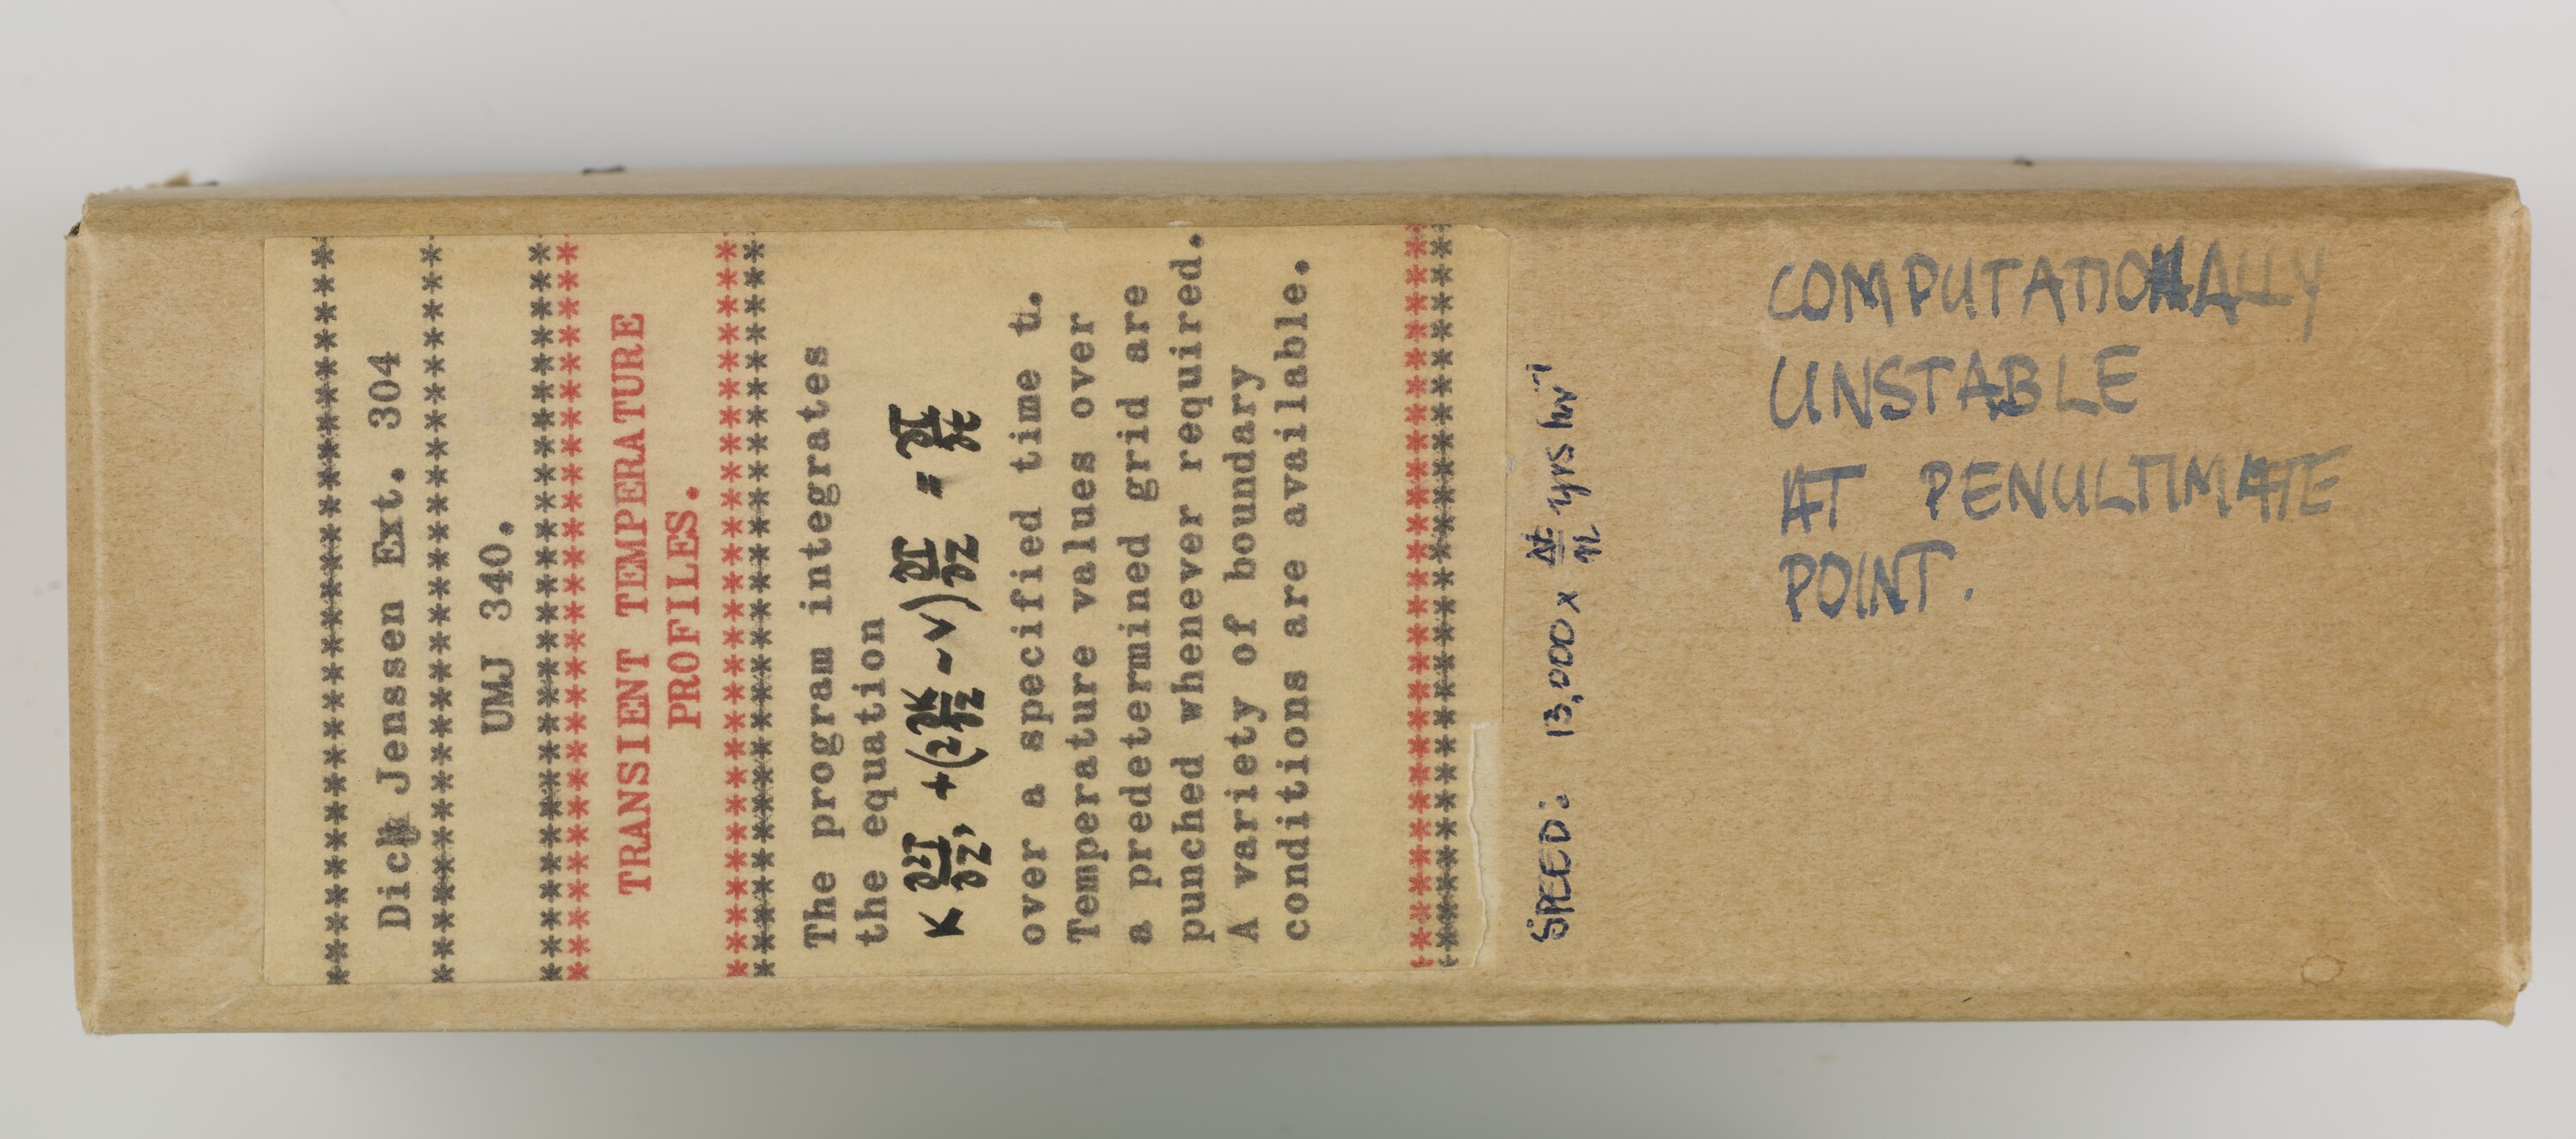 **************************
Dick Jenssen Ext. 304
**************************
UMJ 340.
**************************
**************************
TRANSIENT TEMPERATURE
PROFILES.
**************************
**************************
The program integrates
the equation
K ∂²T/∂Z² + (2 ∂K/∂Z - V) ∂T/∂Z = ∂T/∂t
over a specified time t.
Temperature values over
a predetermined grid are
punched whenever required.
A variety of boundary
conditions are available.
**************************
**************************
SPEED: 13,000 x Δt/n yrs hr⁻¹
COMPUTATIONALLY
UNSTABLE
AT PENULTIMATE
POINT.